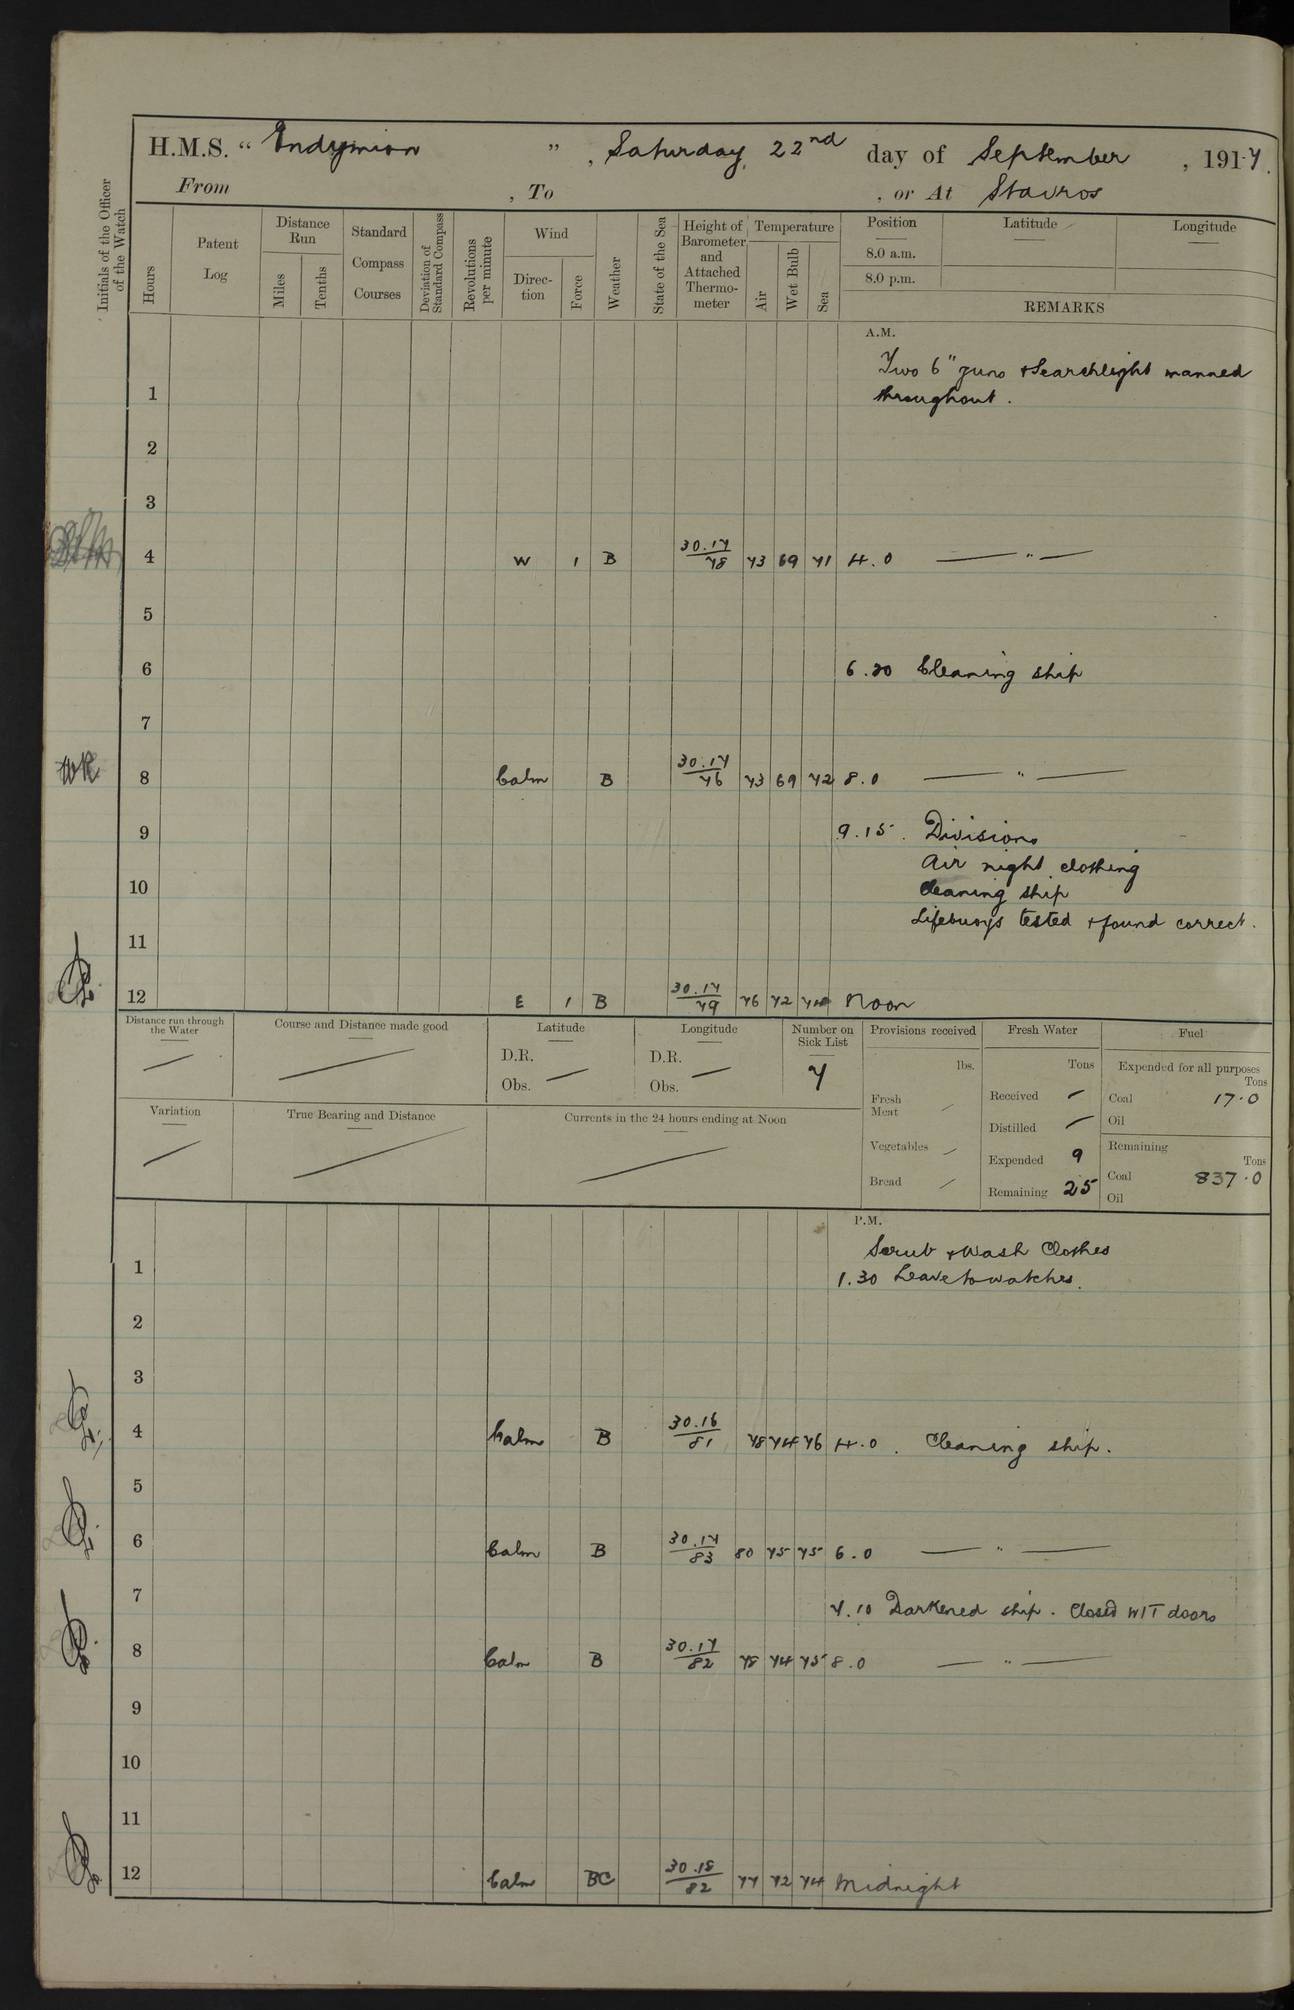 H.M.S. “ Endymion ” , Saturday, 22nd day of September , 1917.
From , To , or At Stavros
Initials of the Officer of the Watch
Hours
Patent Log
Distance Run
Miles
Tenths
Standard Compass Courses
Deviation of Standard Compass
Revolutions per minute
Wind
Direc-tion
Force
Weather
State of the Sea
Height of Barometer and Attached Thermo-meter
Temperature
Air
Wet Bulb
Sea
Position
8.0 a.m.
8.0 p.m.
Latitude
Longitude
REMARKS
A.M.
Two 6" guns + Searchlight manned
1 throughout.
2
3
4 W 1 B 30.17/78 73 69 71 4.0 — " —
5
6 6.20 Cleaning ship
7
8 Calm B 30.17/76 73 69 72 8.0 — " —
9 9.15. Divisions
Air night clothing
10 Cleaning ship
Lifebuoys tested + found correct.
11
12 E 1 B 30.17/79 76 72 74 Noon
Distance run through the Water
Course and Distance made good
Latitude
D.R.
Obs. —
Longitude
D.R. —
Obs.
Number on Sick List
7
Provisions received
lbs.
Fresh Meat
Vegetables
Bread
Fresh Water
Tons
Received —
Distilled —
Expended 9
Remaining 25
Fuel
Expended for all purposes
Tons
Coal 17.0
Oil
Remaining
Tons
Coal 837.0
Oil
Variation
True Bearing and Distance
Currents in the 24 hours ending at Noon
P.M.
Scrub + Wash Clothes
1 1.30 Leave to watches.
2
3
4 Calm B 30.16/81 78 74 76 4.0. Cleaning ship.
5
6 Calm B 30.17/83 80 75 75 6.0 — " —
7 7.10 Darkened ship. Closed W/T doors
8 Calm B 30.17/82 78 74 75 8.0 — " —
9
10
11
12 Calm BC 30.18/82 77 72 74 Midnight